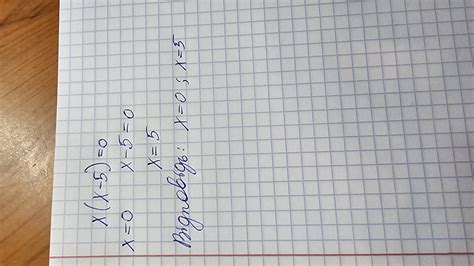 x(x-5)=0
x=0 x-5=0
x=5
Відповідь: x=0; x=5